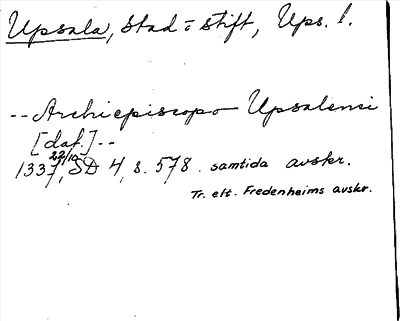 Upsala, stad o stift, Ups. l.
-- Archiepiscopo Upsalensi
[daf.] --
1337 22/10, SD 4, s. 578. samtida avskr.
Tr. eft. Fredenheims avskr.